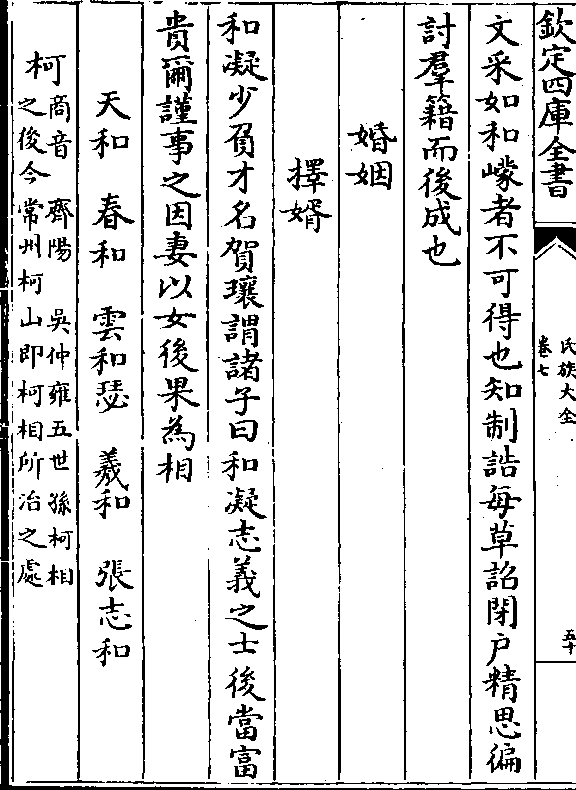 欽定四庫全書
氏族大全
卷七
五十
文采如和㠓者不可得也知制誥每草詔閉户精思徧
討羣籍而後成也
婚姻
擇婿
和凝少負才名賀瓌謂諸子曰和凝志義之士後當富
貴爾謹事之因妻以女後果為相
天和　春和　雲和瑟　羲和　張志和
柯商音　齊陽　吳仲雍五世孫柯相
之後今常州柯山即柯相所治之處